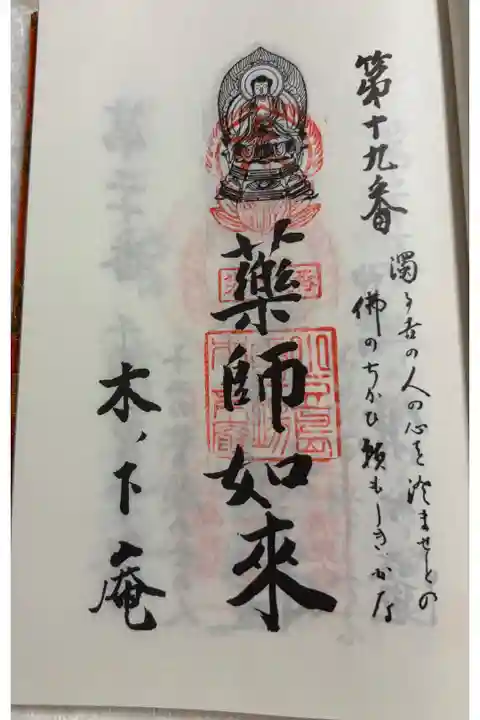 第十九番
濁り世の人の心を澄ませとの
佛のちかひ頼もしきかな
藥師如來
小豆島
木ノ下庵